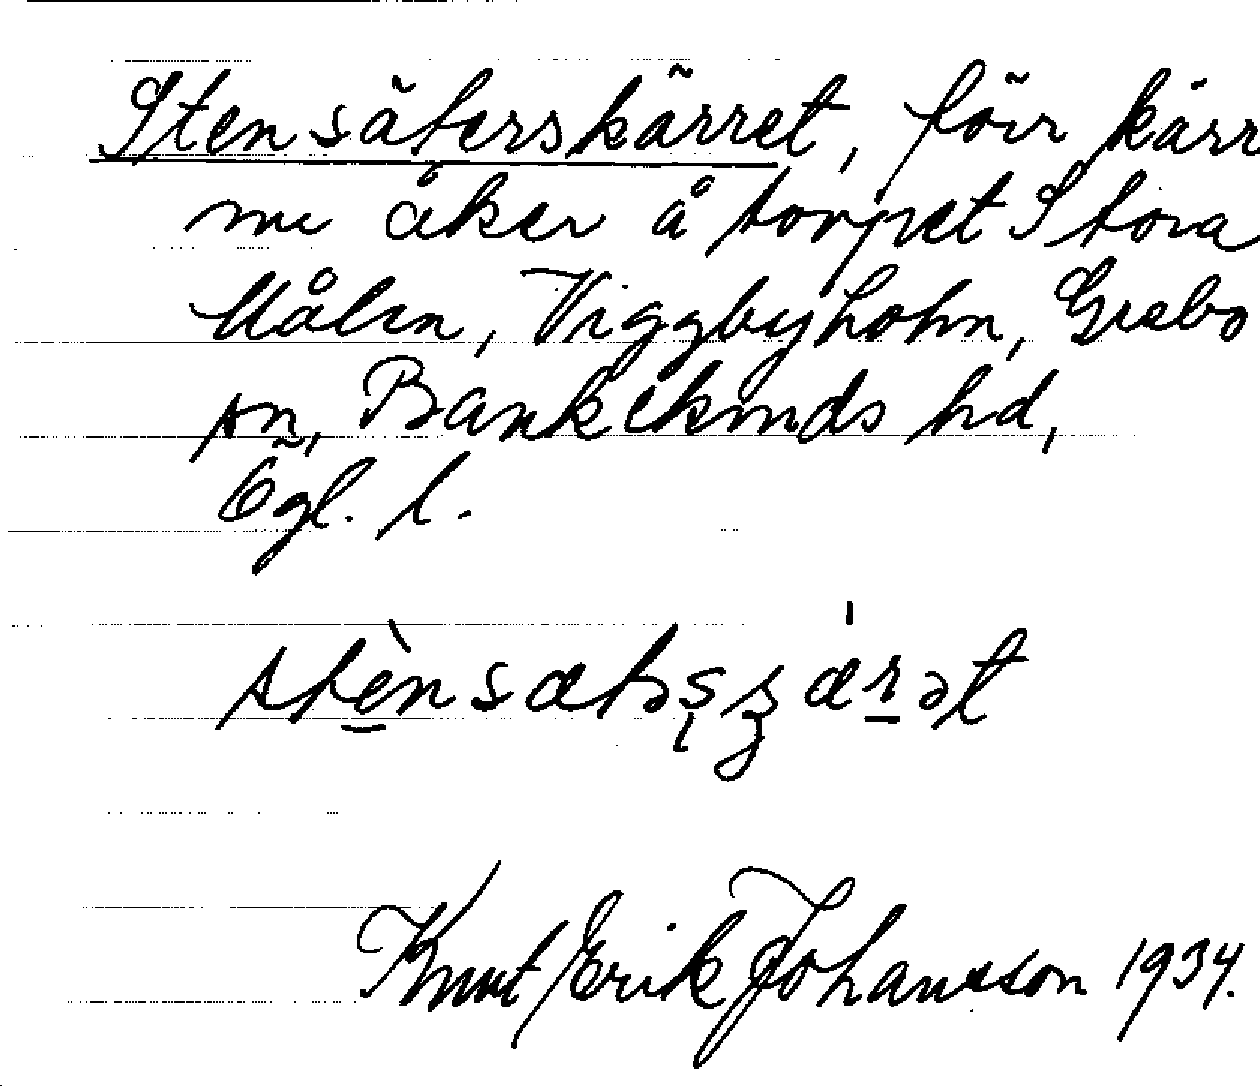 Stensäterskärret, förr kärr
nu åker å torpet Stora
Målen, Viggbyholm, Grebo
sn, Bankekinds hd,
Ögl. l.
Knut/Erik Johansson 1934.